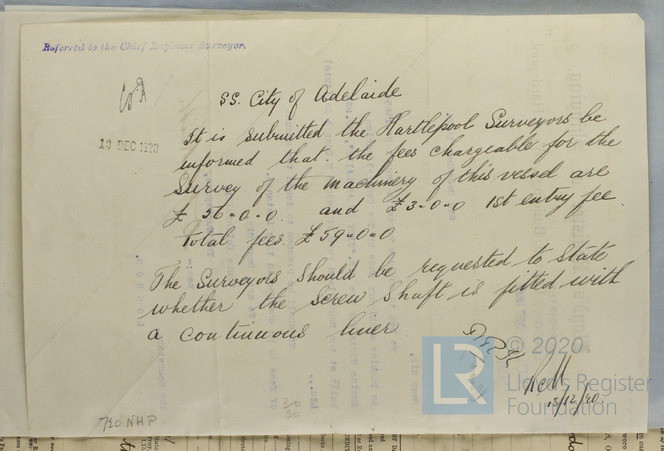 Referred to the Chief Engineer Surveyor.
10 DEC 1920
SS. City of Adelaide
It is submitted the Hartlepool Surveyors be
informed that the fees chargeable for the
Survey of the machinery of this vessel are
£56-0-0 and £3-0-0 1st entry fee.
Total fees £59-0-0
The Surveyors should be requested to state
whether the screw shaft is fitted with
a continuous liner
15/12/20.
30
30
720 NHP
© 2020
LR
Lloyd's Register
Foundation